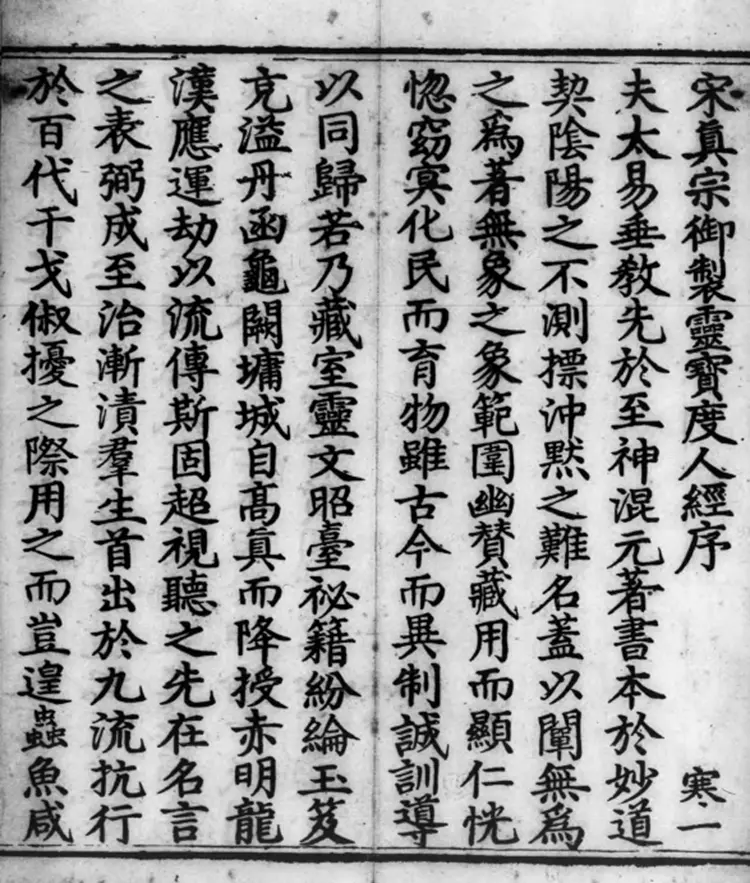 宋真宗御製靈寶度人經序 寒一
夫太易垂教先於至神混元著書本於妙道
契陰陽之不測摽沖默之難名蓋以闡無爲
之爲著無象之象範圍幽賛藏用而顯仁恍
惚窈冥化民而育物雖古今而異制誠訓導
以同歸若乃藏室靈文昭臺祕籍紛綸玉笈
充溢丹函龜闕墉城自高真而降授赤明龍
漢應運劫以流傳斯固超視聽之先在名言
之表弼成至治漸漬羣生首出於九流抗行
於百代干戈俶擾之際用之而豈遑蟲魚咸